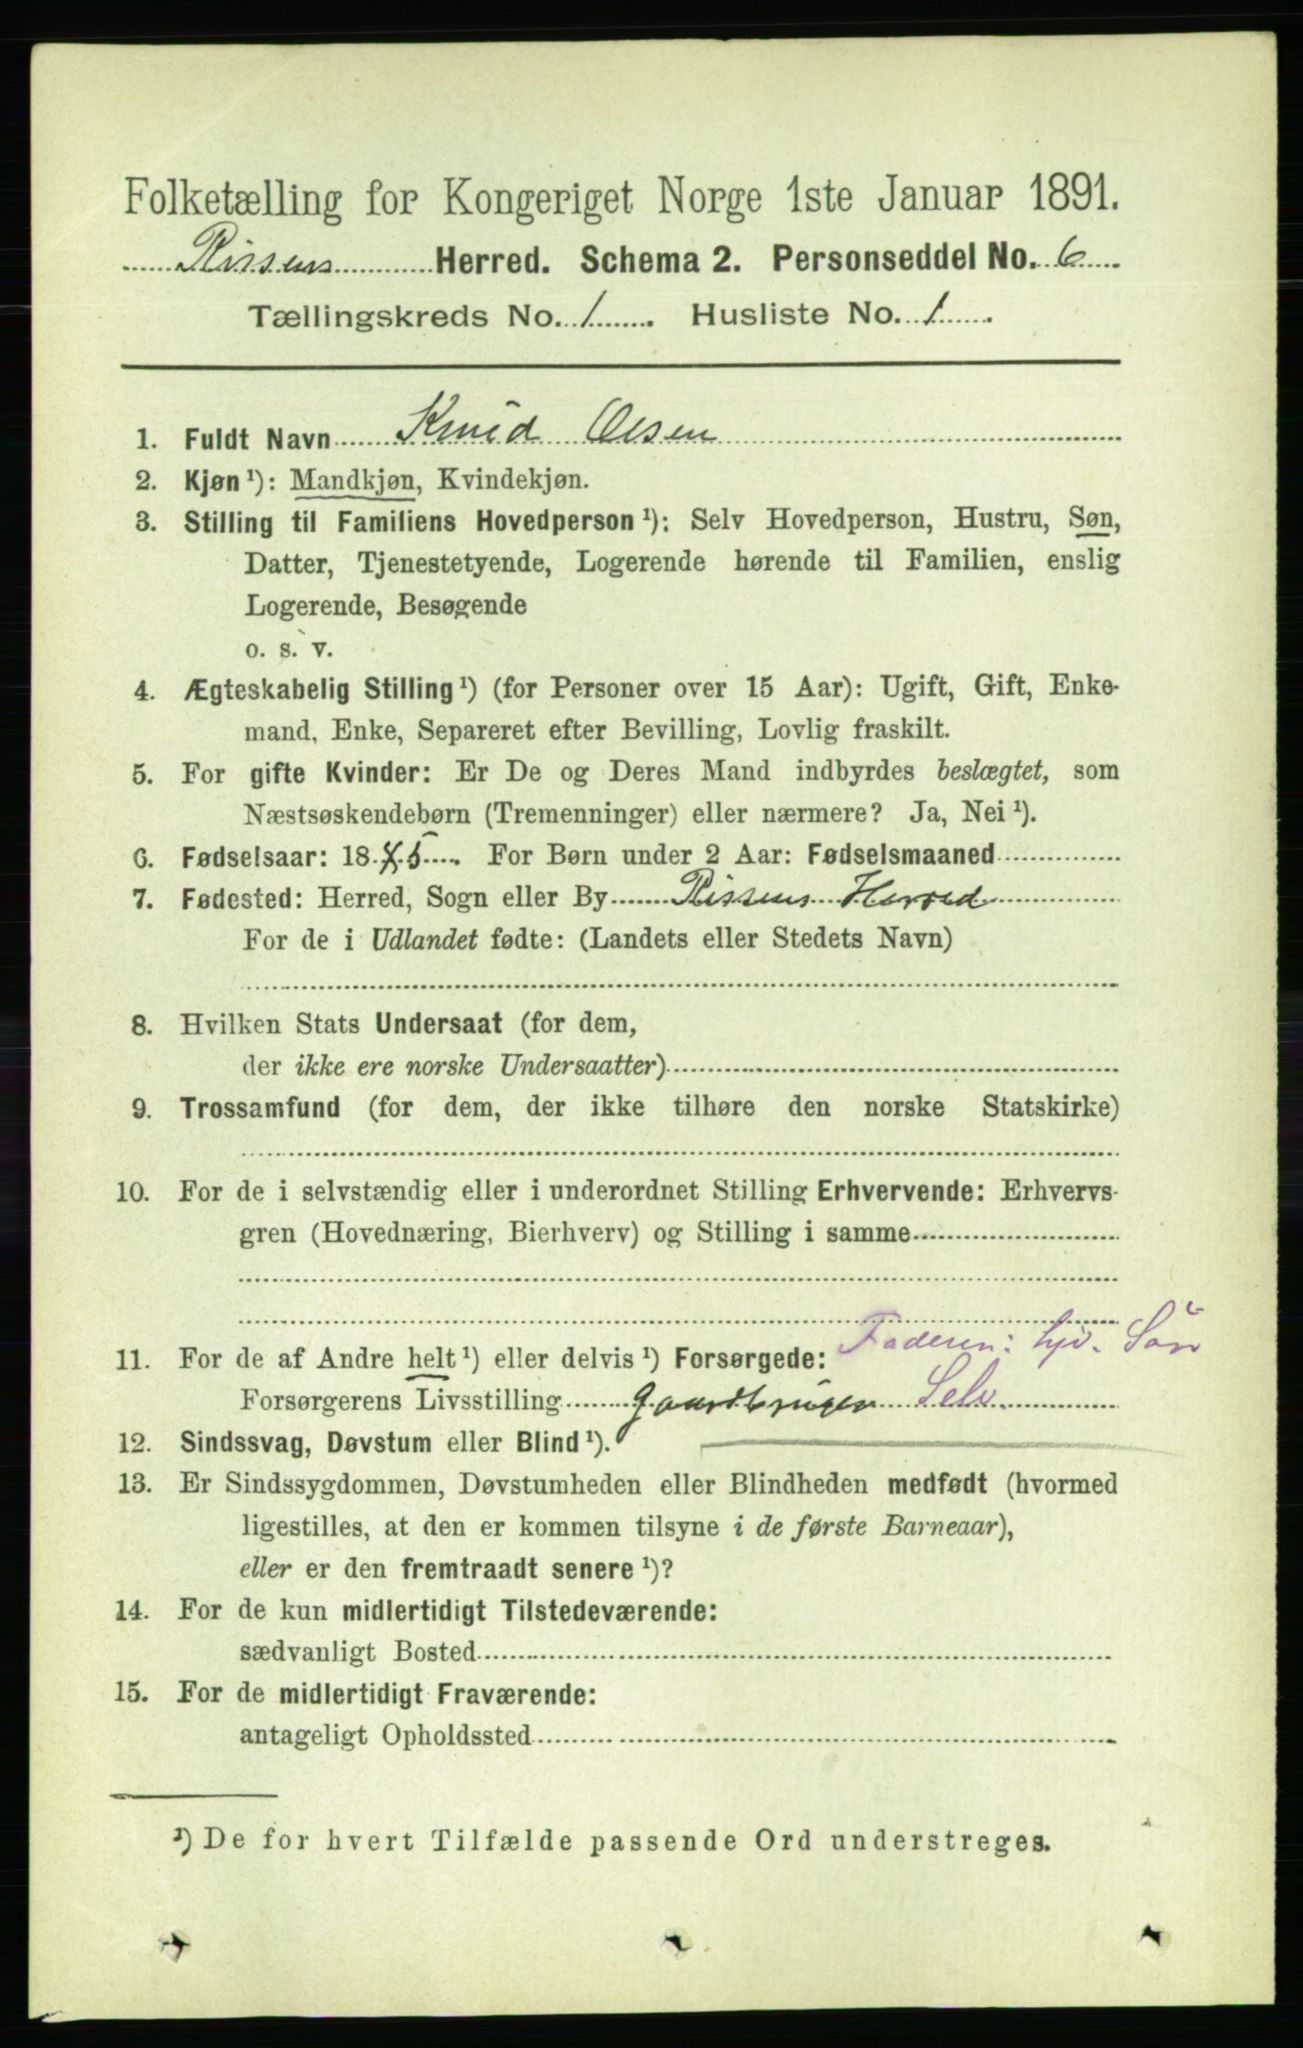 Folketælling for Kongeriget Norge 1ste Januar 1891.
Rissens Herred. Schema 2. Personseddel No. 6
Tællingskreds No. 1. Husliste No. 1.
1. Fuldt Navn Knud Olsen
2. Kjøn ¹): Mandkjøn, Kvindekjøn.
3. Stilling til Familiens Hovedperson ¹): Selv Hovedperson, Hustru, Søn,
Datter, Tjenestetyende, Logerende hørende til Familien, enslig
Logerende, Besøgende
o. s. v.
4. Ægteskabelig Stilling ¹) (for Personer over 15 Aar): Ugift, Gift, Enke-
mand, Enke, Separeret efter Bevilling, Lovlig fraskilt.
5. For gifte Kvinder: Er De og Deres Mand indbyrdes beslægtet, som
Næstsøskendebørn (Tremenninger) eller nærmere? Ja, Nei ¹).
6. Fødselsaar: 18 5. For Børn under 2 Aar: Fødselsmaaned
7. Fødested: Herred, Sogn eller By Rissens Herred
For de i Udlandet fødte: (Landets eller Stedets Navn)
8. Hvilken Stats Undersaat (for dem,
der ikke ere norske Undersaatter)
9. Trossamfund (for dem, der ikke tilhøre den norske Statskirke)
10. For de i selvstændig eller i underordnet Stilling Erhvervende: Erhvervs-
gren (Hovednæring, Bierhverv) og Stilling i samme
Faderen: Søn
11. For de af Andre helt ¹) eller delvis ¹) Forsørgede:
Forsørgerens Livsstilling Gaardbruger Selv.
12. Sindssvag, Døvstum eller Blind ¹).
13. Er Sindssygdommen, Døvstumheden eller Blindheden medfødt (hvormed
ligestilles, at den er kommen tilsyne i de første Barneaar),
eller er den fremtraadt senere ¹)?
14. For de kun midlertidigt Tilstedeværende:
sædvanligt Bosted
15. For de midlertidigt Fraværende:
antageligt Opholdssted
¹) De for hvert Tilfælde passende Ord understreges.